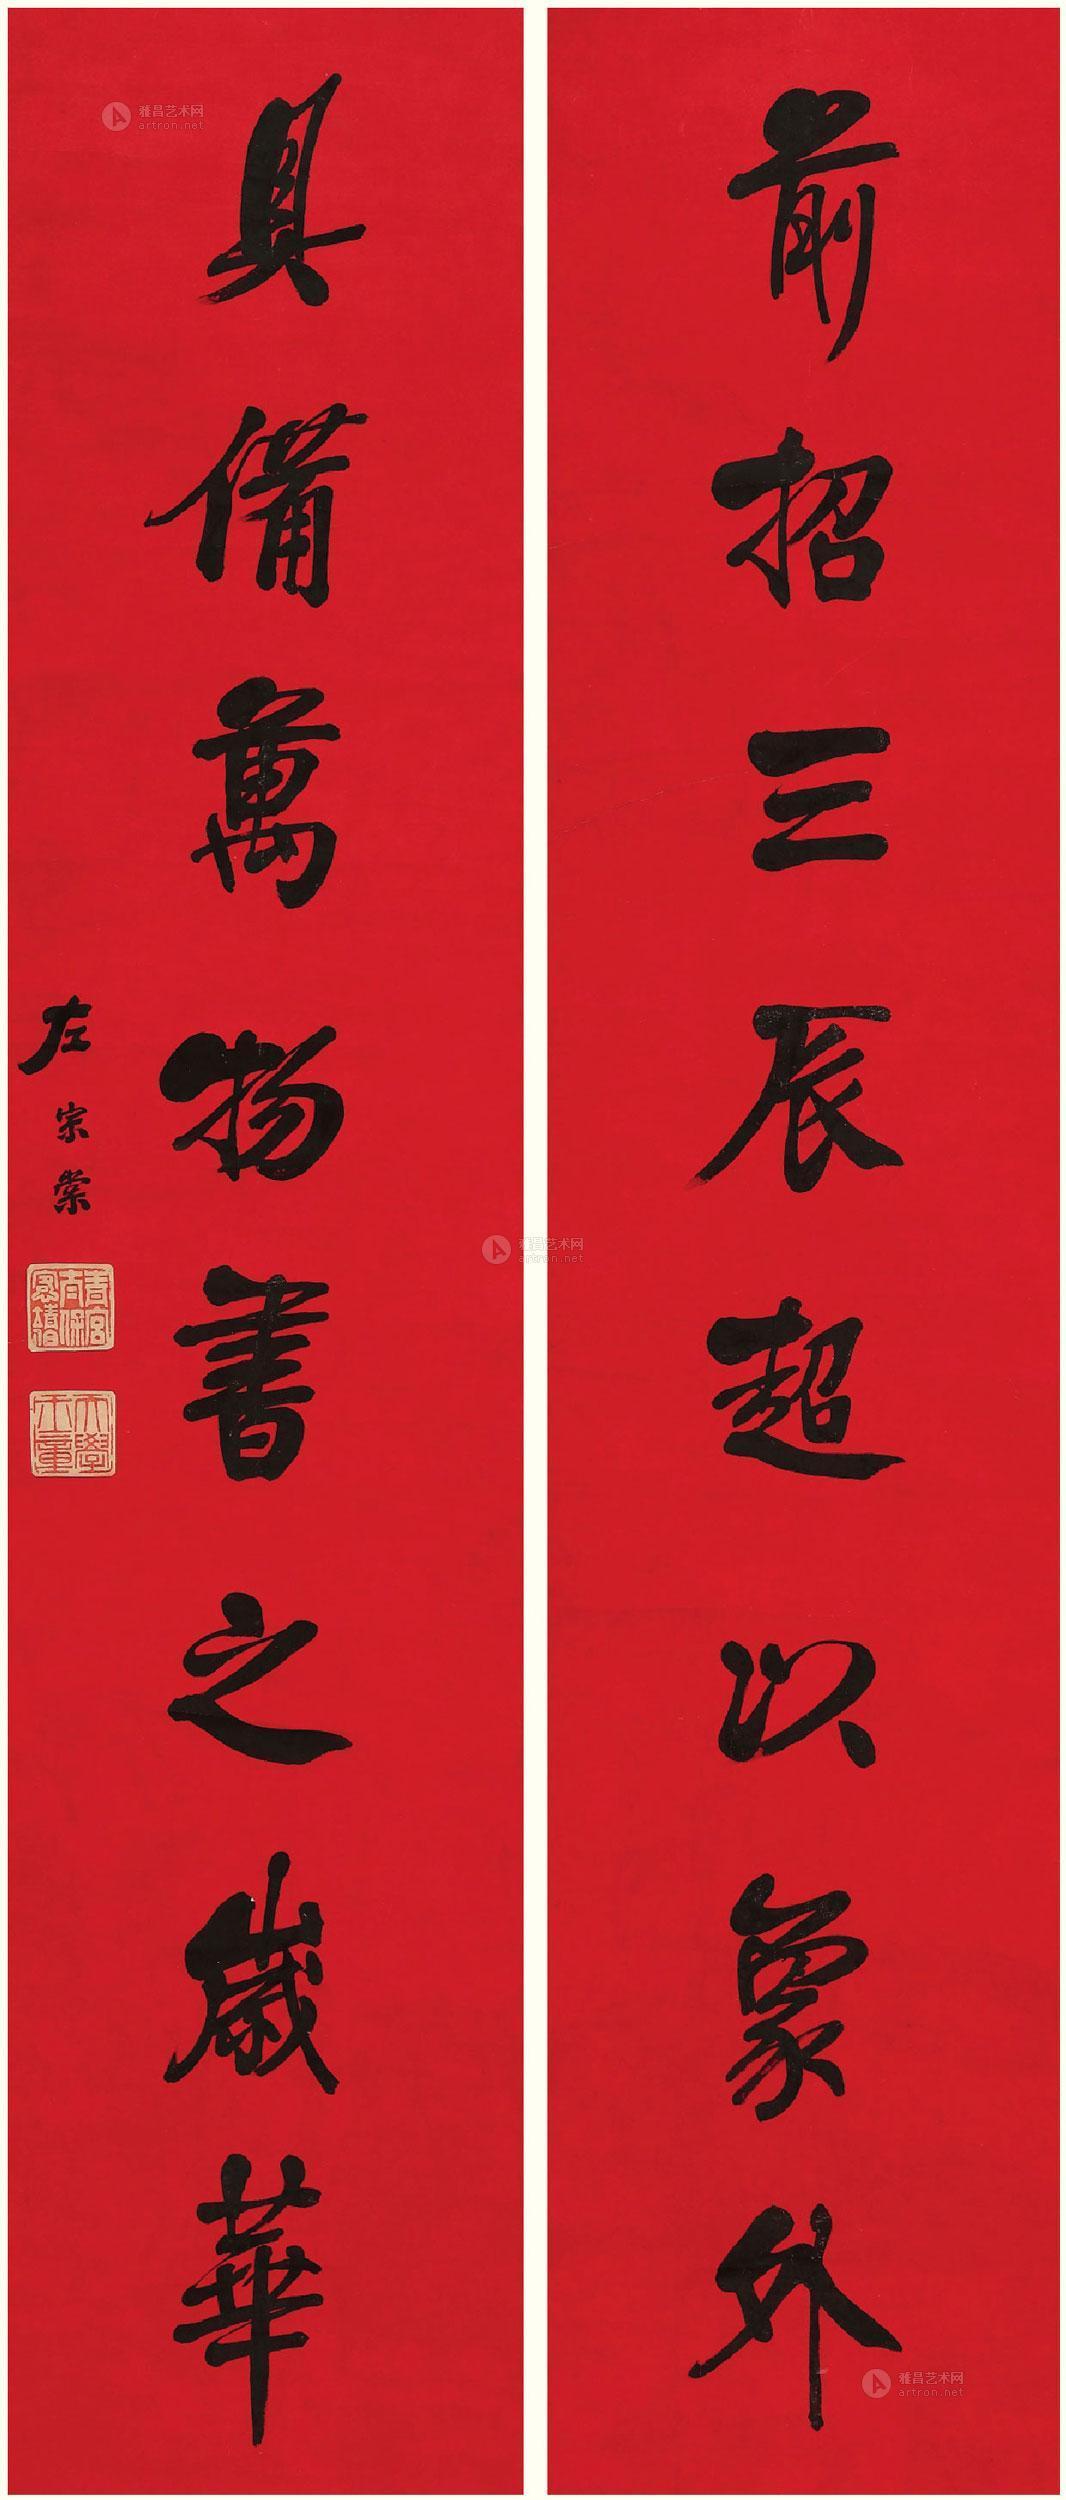 前招三辰超以象外
具備萬物書之歲華
左宗棠
青宮太保恪靖侯
大學士章
雅昌艺术网
artron.net
雅昌艺术网
artron.net
雅昌艺术网
artron.net